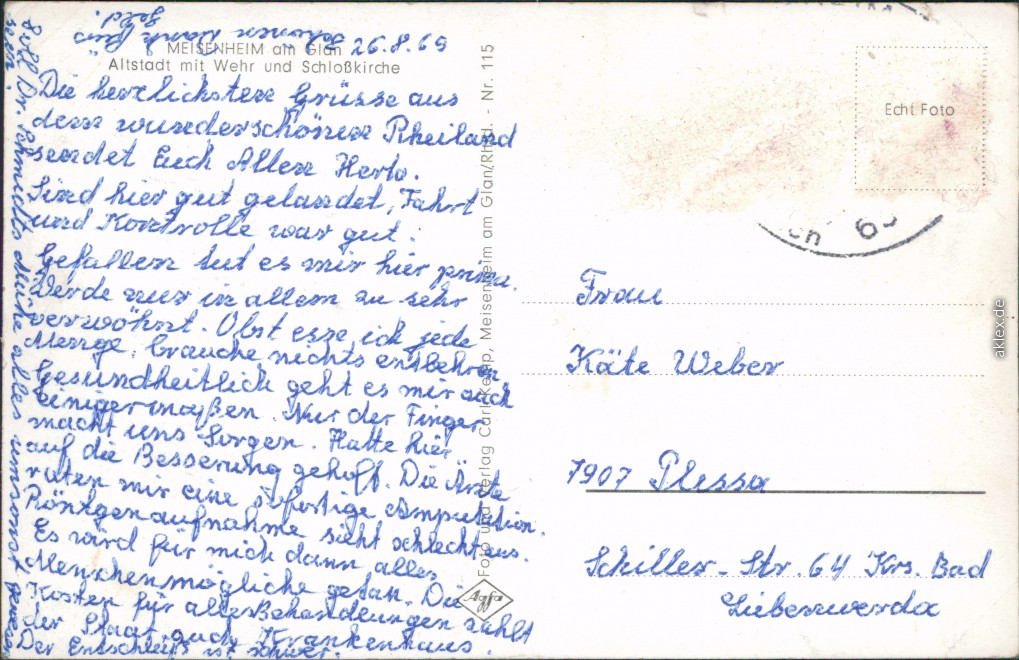 MEISENHEIM am Glan
Altstadt mit Wehr und Schloßkirche
26.8.69
Die herzlichsten Grüsse aus
dem wunderschönen Rheiland
sendet Euch Allen Herta.
Sind hier gut gelandet, Fahrt
und Kontrolle war gut.
Gefallen tut es mir hier prima.
Werde nur in allem zu sehr
verwöhnt. Obst esse ich jede
Menge, brauche nichts entbehren
Gesundheitlich geht es mir auch
einigermaßen. Nur der Finger
macht uns Sorgen. Hatte hier
auf die Besserung gehofft. Die Ärzte
raten mir eine sofortige Amputation.
Röntgenaufnahme sieht schlecht aus.
Es wird für mich dann alles
Menschenmögliche getan. Die
Kosten für alles Behandlungen zahlt
der Staat, auch Krankenhaus.
Der Entschluß ist schwer.
Soll Dr. Schmidts Mühe alles umsonst gewesen
sein.
schönen Dank fürs
Geld.
Foto und Verlag Carl Kepp, Meisenheim am Glan/Rhld. - Nr. 115
Agfa
Echt Foto
69
Frau
Käte Weber
7907 Plessa
Schiller-Str. 64 Krs. Bad
Liebenwerda
aklex.de